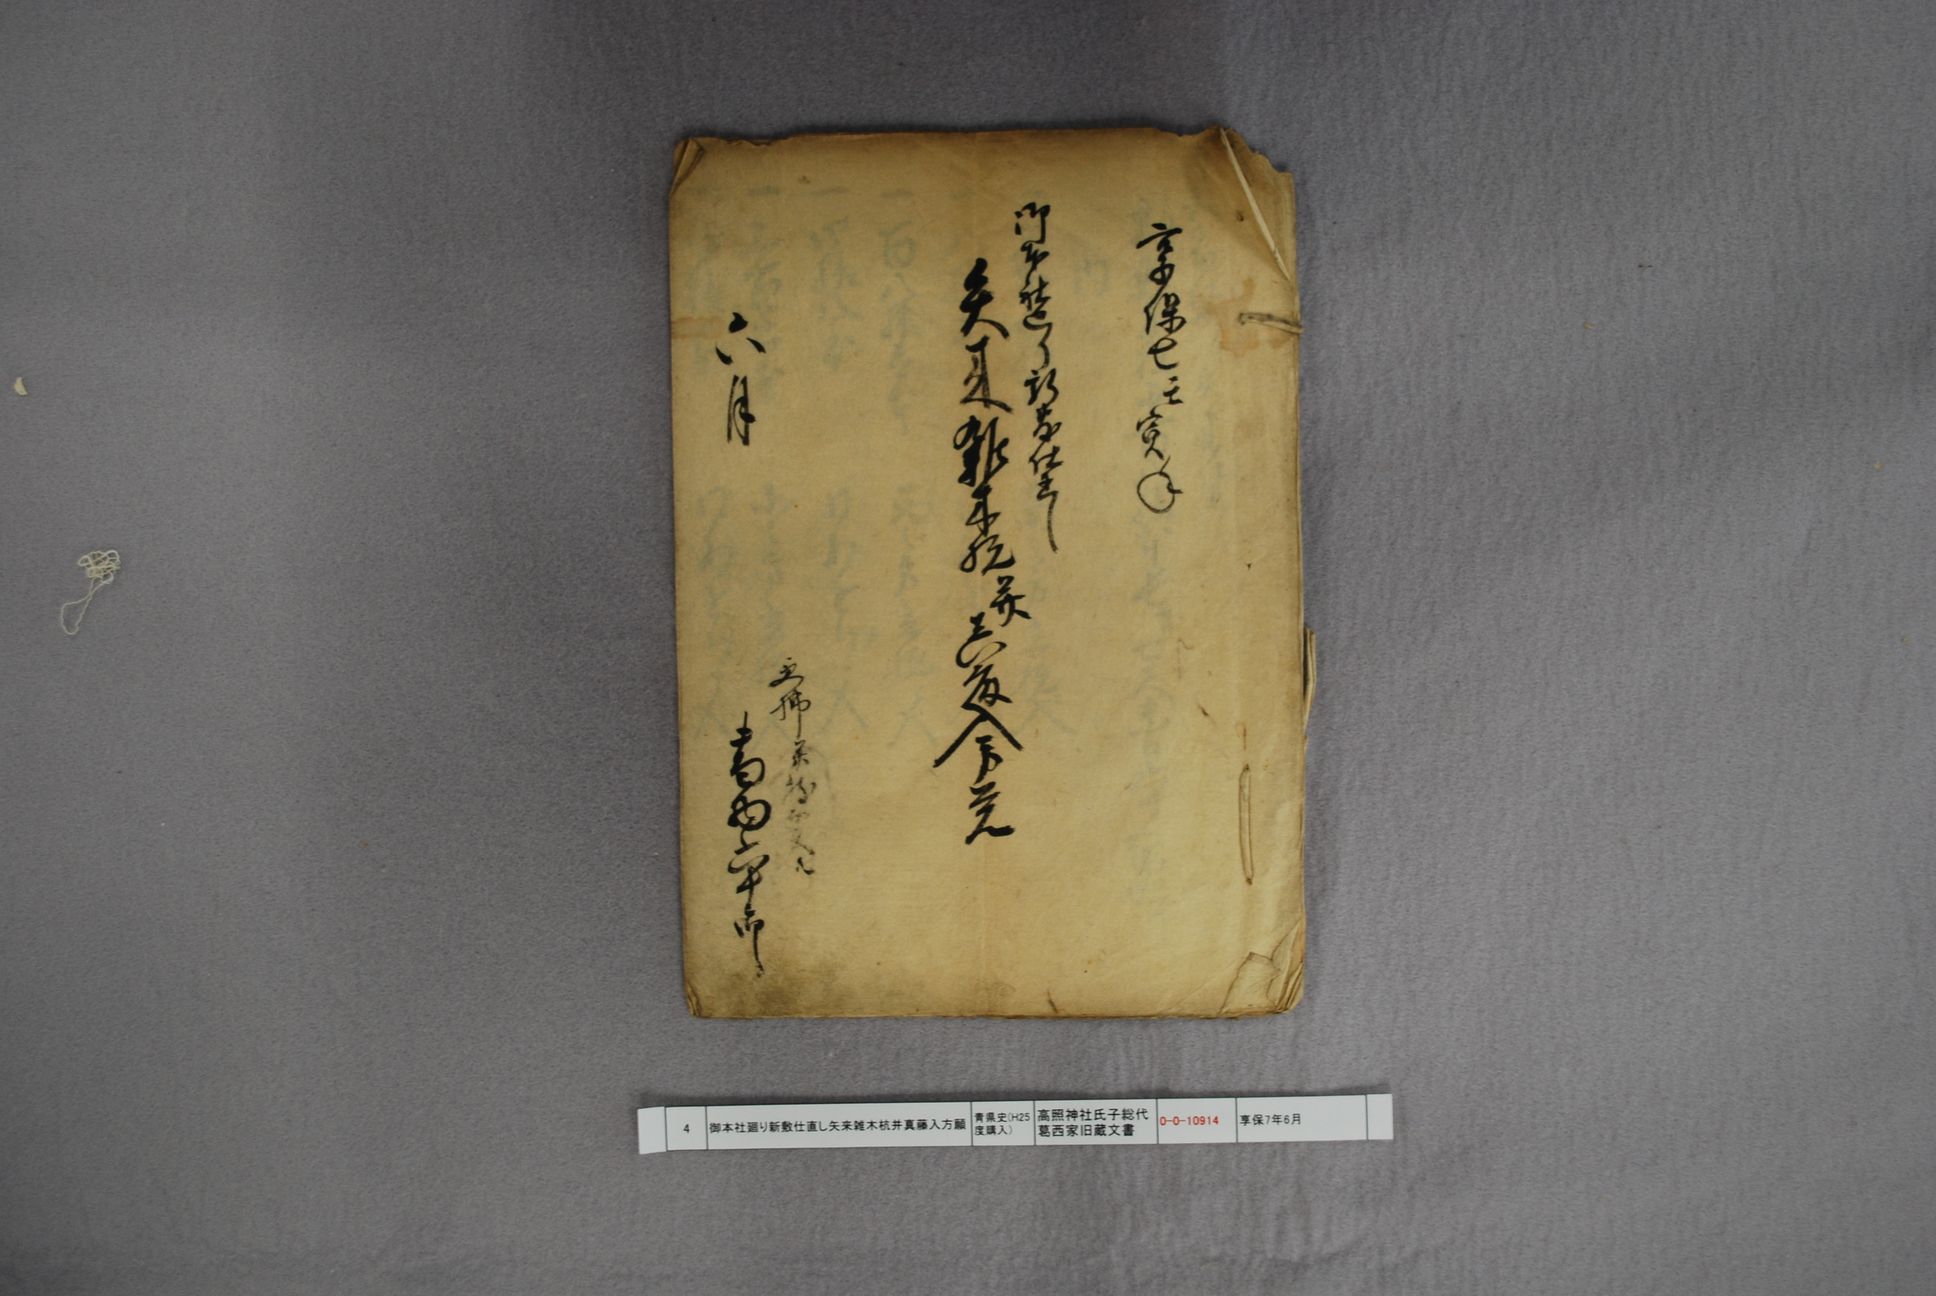 享保七壬寅年
御本社廻り新敷仕直し
矢来雑木杭并真藤入方覚
六月
4
御本社廻り新敷仕直し矢来雑木杭并真藤入方願
青県史(H25
度購入)
高照神社氏子総代
葛西家旧蔵文書
O-O-10914
享保7年6月